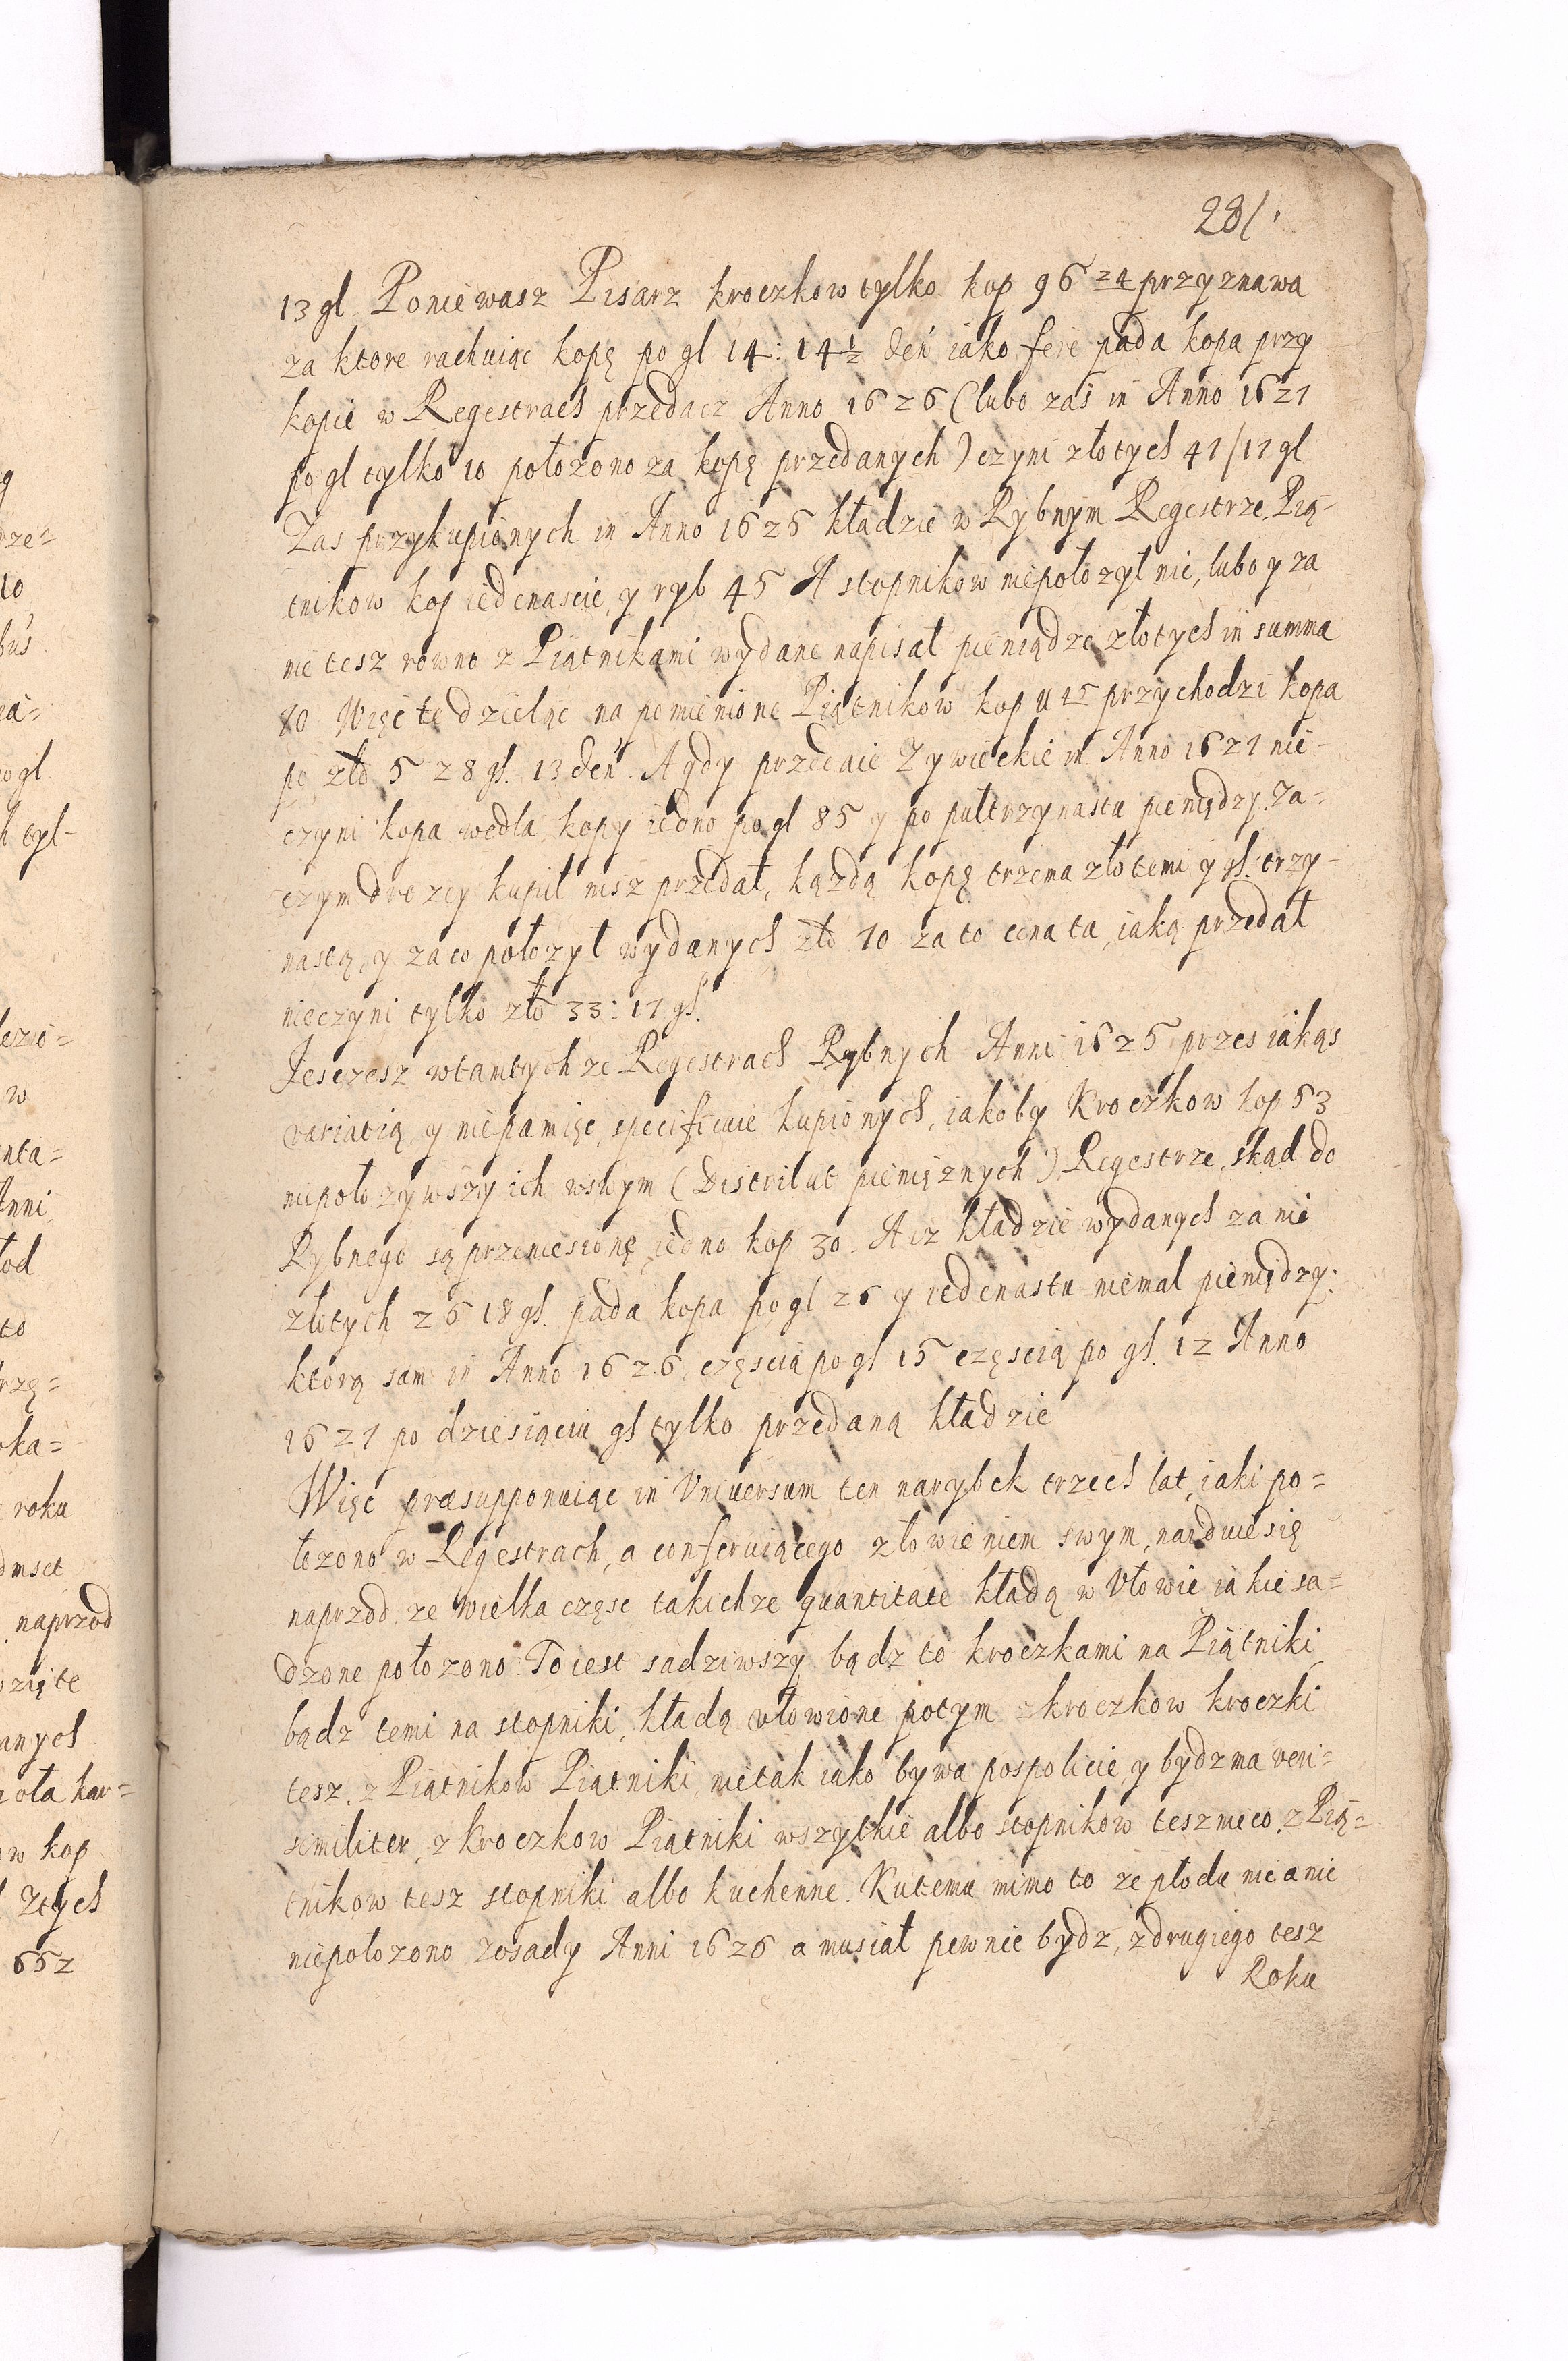 281.
13 gl. Poniewasz Pisarz kroczkow tylko kop 96 24 przyznawa
za ktore rachuiąc kopę po gl 14: 14½ deń iako fere pada kopa przy
kopie w Regestrach przedacz Anno 1626 (lubo zaś in Anno 1627
po gl tylko 10 położono za kopę przedanych) czyni złotych 47/17 gl
Zas przykupionych in Anno 1625 kładzie w Rybnym Regestrze, Pią-
tnikow kop iedenascie y ryb 45 A stopnikow niepołozył nic, lubo y za
ne tesz rowno z Piątnikami wydane napisał pieniądze złotych in summa
70 Więc te dzieląc na pomienione Piątnikow kop 11 45 przychodzi kopa
po zło 5 28 gl. 13 deń. A gdy przedaie Zywieckie in Anno 1627 nie-
czyni kopa wedla kopy iedno po gl 85 y po pułtrzynasta pieniędzy. Za=
czym drozey kupił nisz przedał, kązdą kopę trzema złotemi y gl. trzy-
nastą, y za co połozył wydanych zło 70 za to cena ta, iaką przedał
nieczyni tylko zło 33: 17 gl.
Jesczesz wtamtychze Regestrach Rybnych Anni 1625 przes iakąs
variatią y niepamięc, specificuie kupionych, iakoby Kroczkow kop 53
niepołozywszy ich wshym (Distribut pieniężnych) Regestrze, skąd do
Rybnego są przeniesionę, iedno kop 30. A iz kładzie wydanych za nie
złotych 26 18 gl. pada kopa po gl 26 y iedenastu niemal pieniędzy:
ktorą sam in Anno 1626, częscią po gl 15 częscią po gl. 12 Anno
1627 po dziesiąciu gl tylko przedaną kładzie
Więc præsupponuiąc in Vniuersum ten narybek trzech lat, iaki po=
łozono w Regestrach, a conferuiącego złowieniem swym, naiduie się
naprzod, ze wielka częsc takichze quantitate kładą w Vłowie iakie sa=
dzone połozono. To iest sadziwszy bądz to kroczkami na Piątniki
bądz temi na stopniki, kładą vłowione potym z kroczkow kroczki
tesz, z Piątnikow Piątniki, nietak iako bywa pospolicie y bydz ma veri=
similiter, z kroczkow Piątniki wszytkie albo stopnikow tesz nieco, z Pią=
tnikow tesz stopniki albo kuchenne. Kutemu mimo to ze płodu nic a nic
niepołozono zosady Anni 1626 a musiał pewnie bydz, zdrugiego tesz
Roku